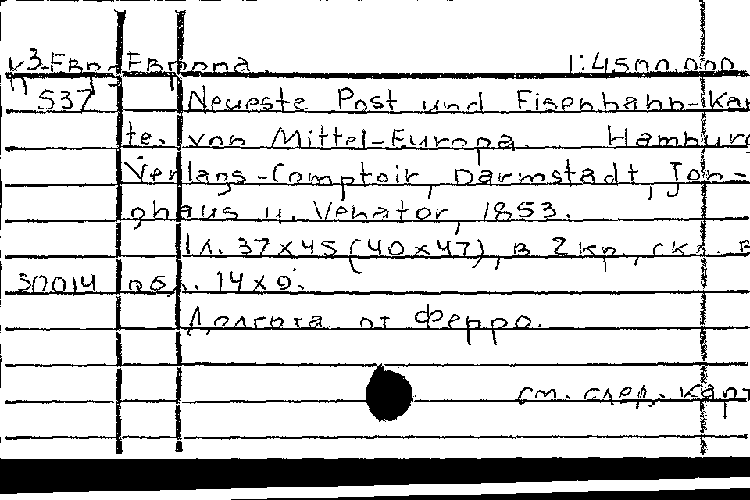 К3-Евр Европа. 1:4500.000
п 537 Neueste Post und Eisenbahn-Kar
te. von Mittel-Europa. Hamburg
Verlags-Comptoir, Darmstadt, Jon-
ghaus u. Venator, 1853.
1 л. 37x45 (40x47), в 2 кр., скл. в
30014 обл. 14x9.
Долгота от Ферро.
см. след. карт